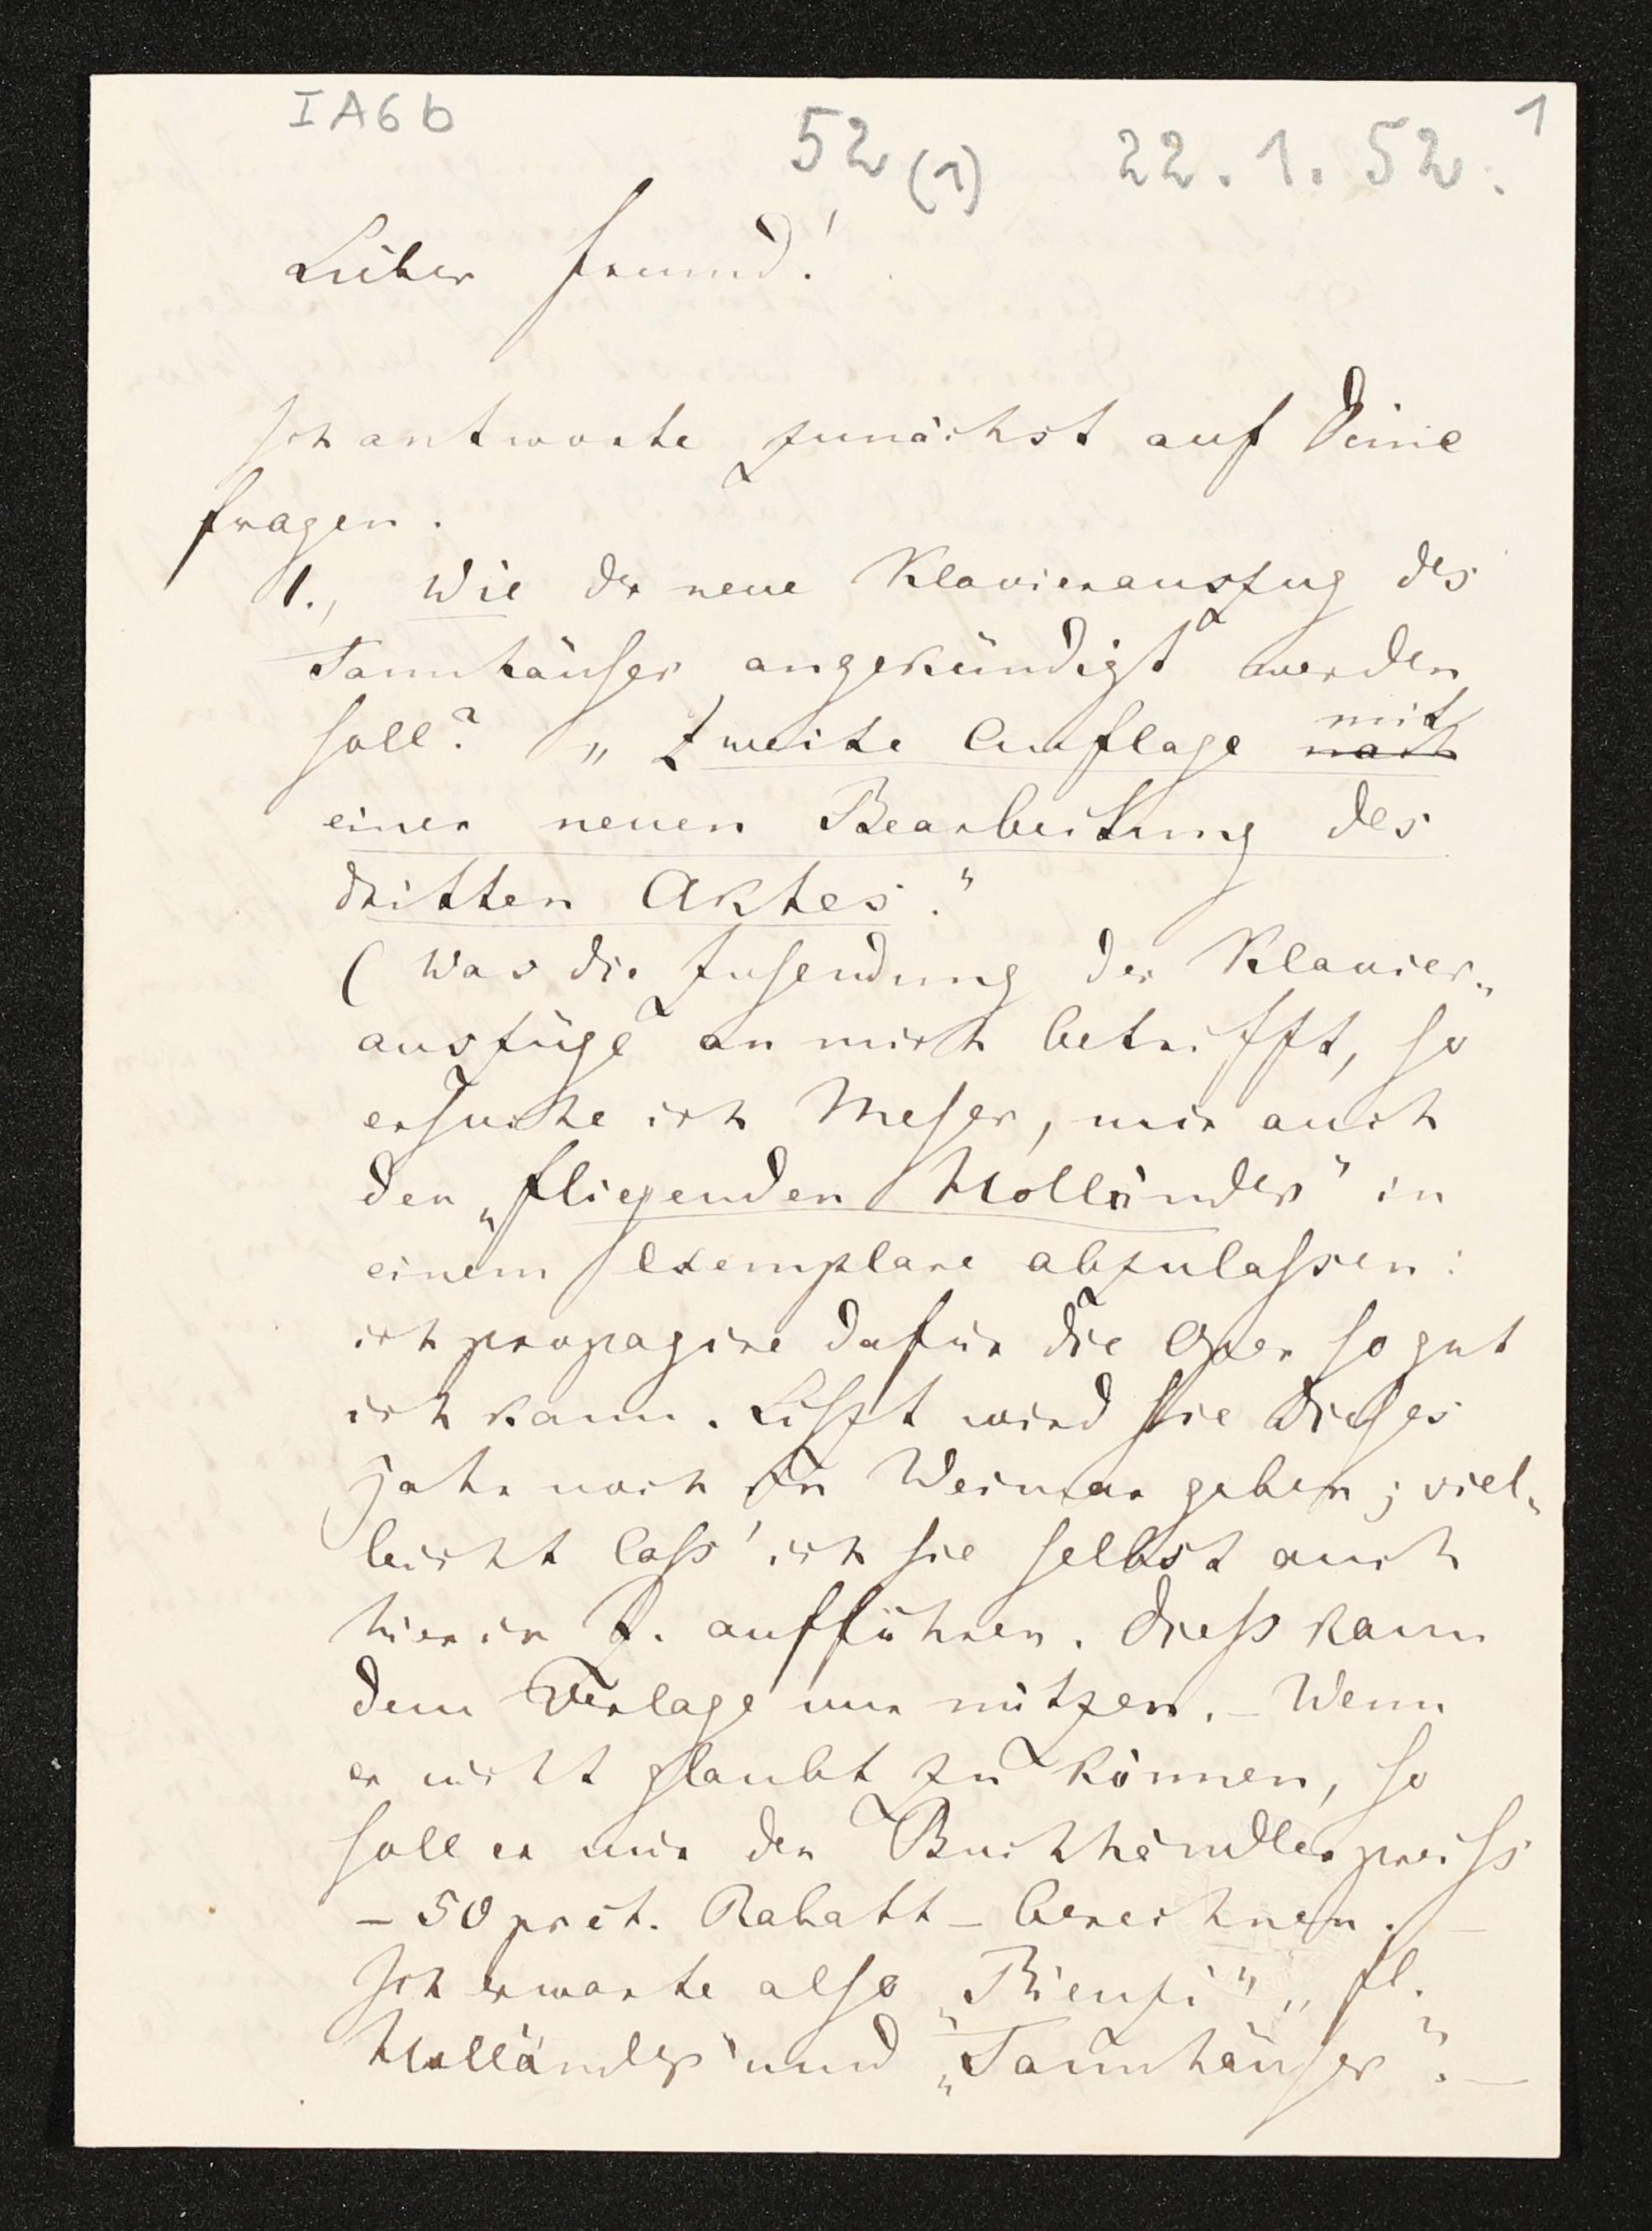 IA6b
52 (1) 22.1.52.
1
Lieber Freund!
Ich antworte zunächst auf Deine
Fragen.
1., Wie der neue Klavierauszug des
Tannhäuser angekündigt werden
soll? „Zweite Auflage nach mit
einer neuen Bearbeitung des
dritten Aktes."
(Was die Zusendung der Klavier„
auszüge an mich betrifft, so
ersuche ich Meser, mir auch
den „fliegenden Holländer" in
einem Exemplare abzulassen:
ich propagire dafür die Oper so gut
ich kann. Liszt wird sie dieses
Jahr noch in Weimar geben; viel„
leicht lass' ich sie selbst auch
hier in Z. aufführen. Diess kann
dem Verlage nur nützen. – Wenn
er nicht glaubt zu können, so
soll er mir den Buchhändlerpreiss
– 50 prct. Rabatt – berechnen. –
Ich erwarte also „Rienzi" „fl.
Holländer" und „Tannhäuser". –